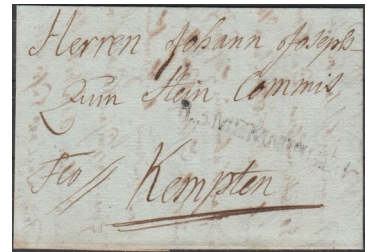 Herren Johann Joseph
Zum Stein Commis
Fco//
Kempten